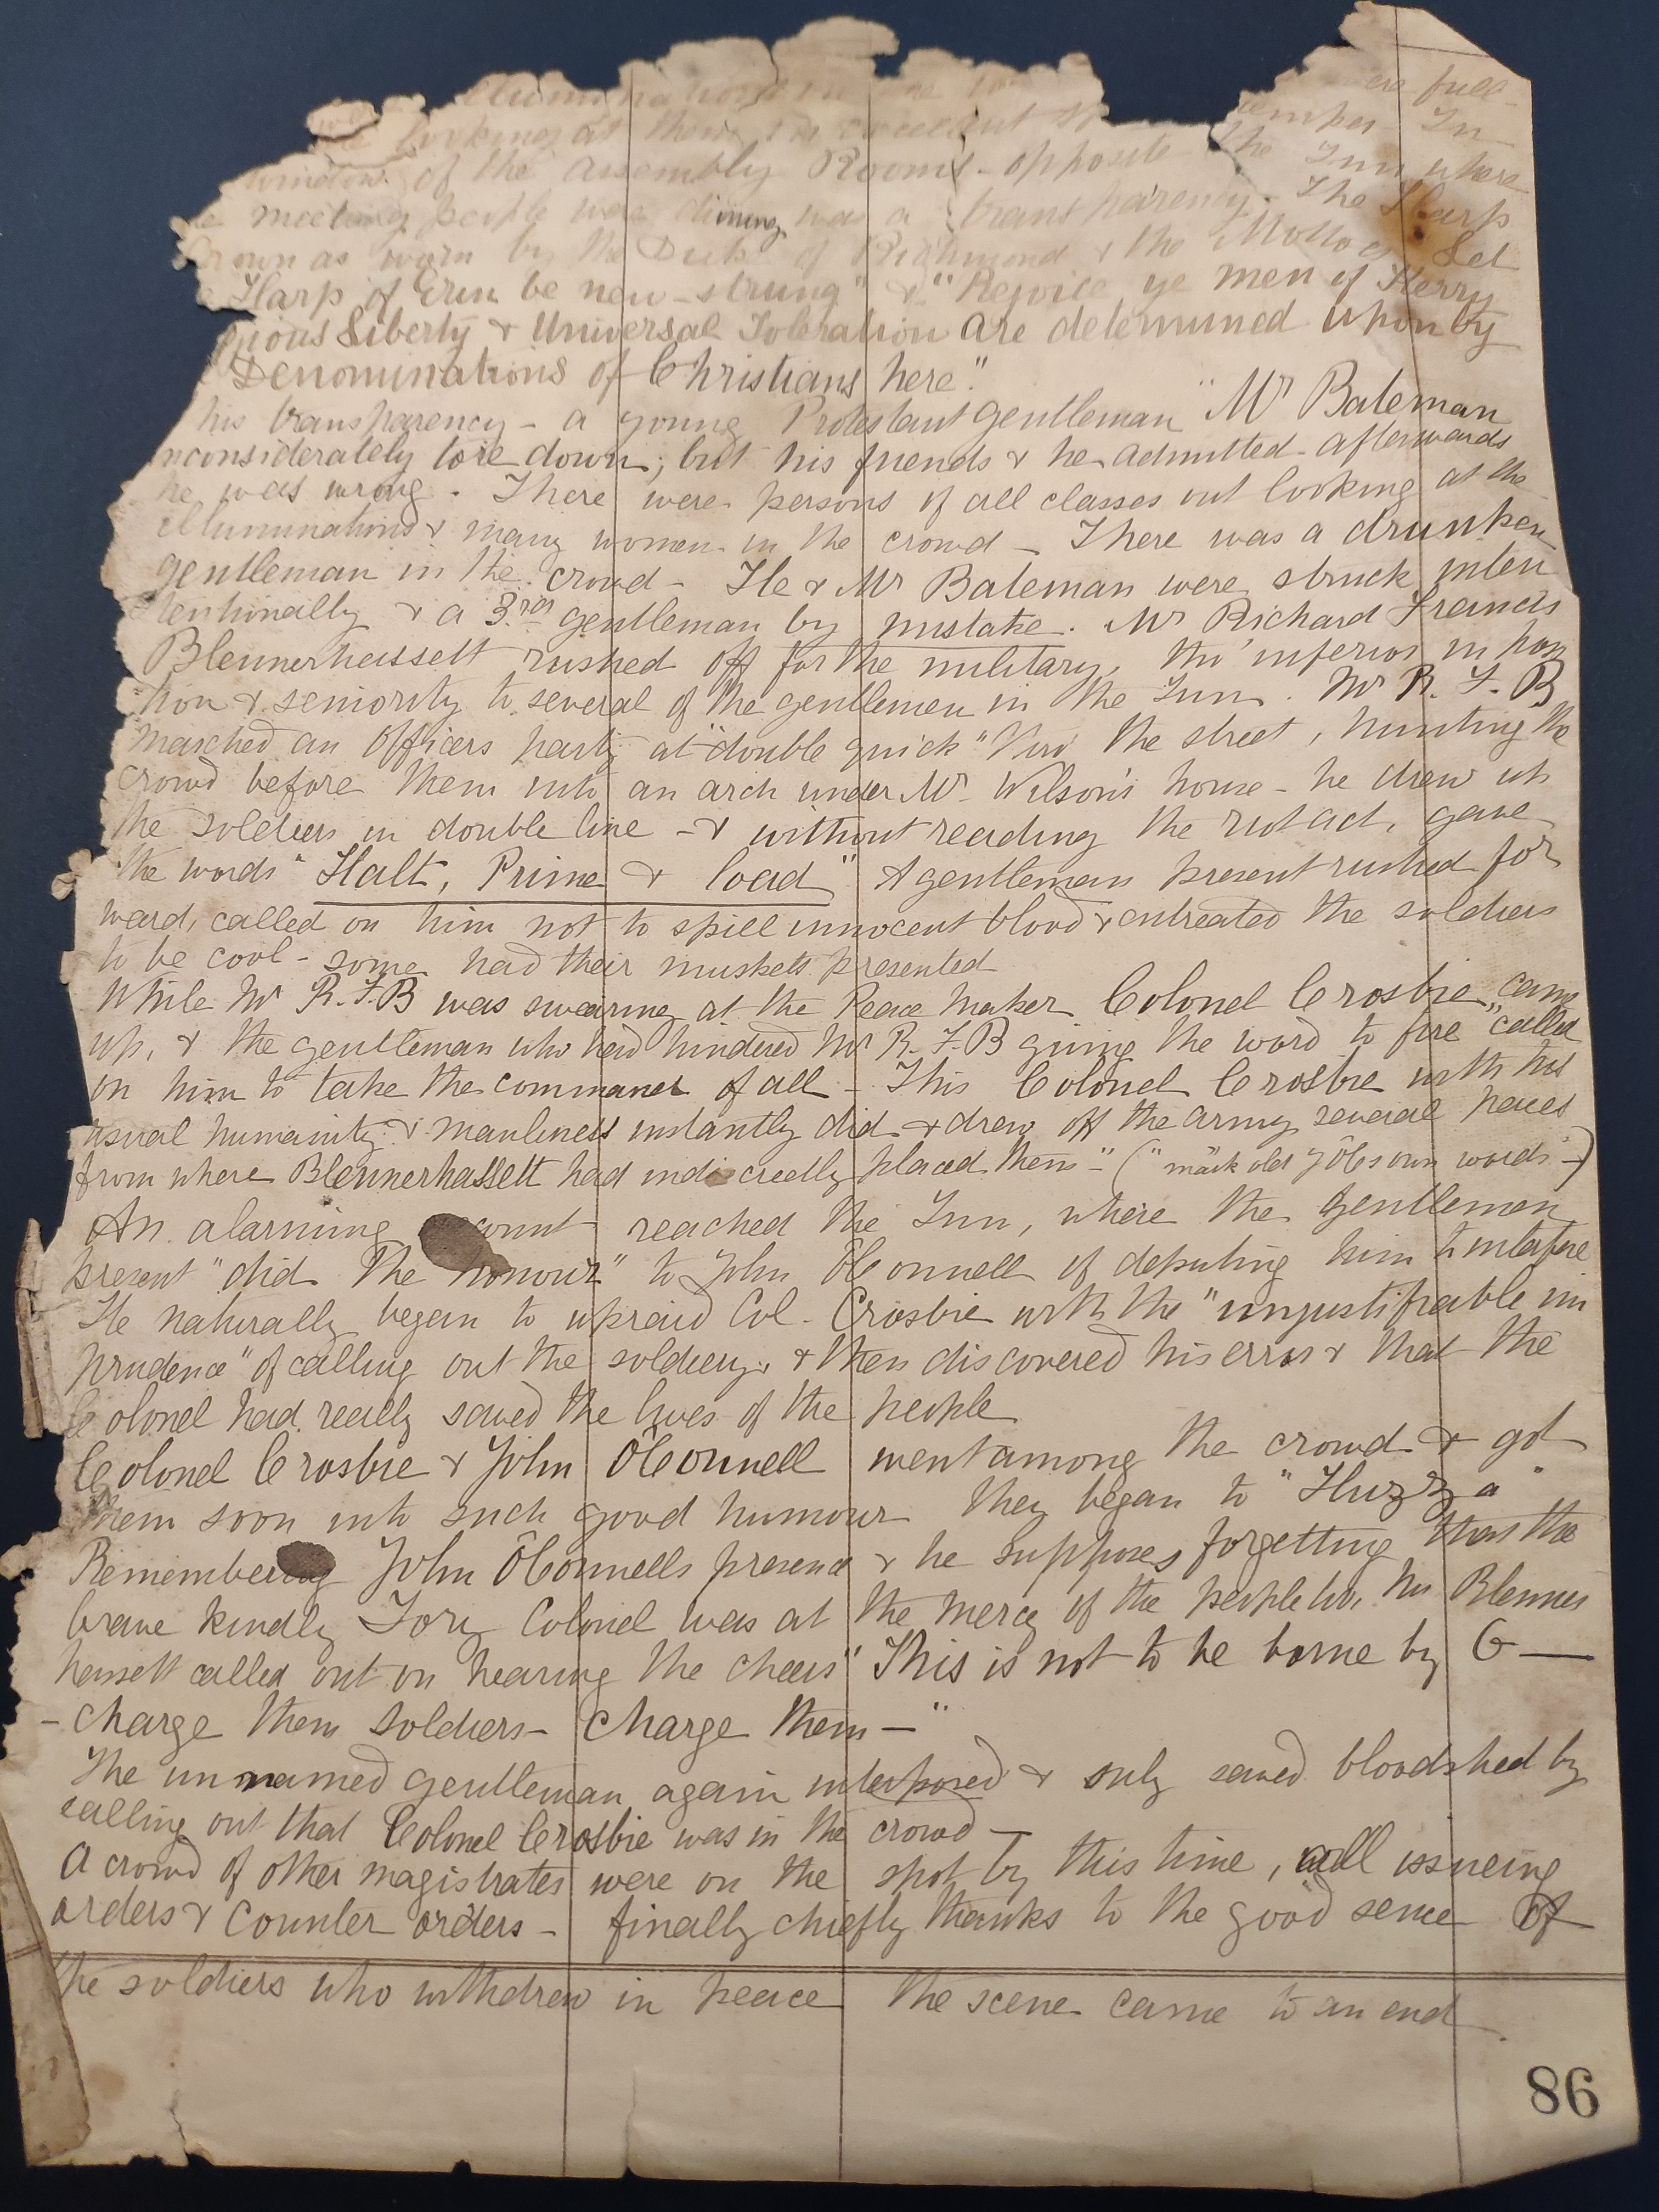 illuminations in the
are full
looking at them in excellent
temper In
window of the Assembly Rooms - opposite - the Inn where
meeting people was dining was a transparency - The Harp
Crown as worn by the Duke of Richmond & the Mottoes Let
Harp of Erin be new-strung" & "Rejoice ye men of Kerry
gious Liberty & Universal Toleration are determined upon by
Denominations of Christians here".
his transparency - a young Protestant gentleman "Mr Bateman
nconsiderately tore down; but his friends & he admitted afterwards
he was wrong - There were persons of all classes out looking at the
illuminations & many women in the crowd - There was a drunken
gentleman in the crowd - He & Mr Bateman were struck inten
tentionally & a 3rd gentleman by mistake. Mr Richard Francis
Blennerhassett rushed off for the military, tho' inferior in posi
tion & seniority to several of the gentlemen in the Inn. Mr R. F. B
marched an Officers party at "double quick" thro' the street, hunting the
crowd before them into an arch under Mr Wilson's house - he drew up
the soldiers in double line - & without reading the riot act, gave
the words "Halt, Prime & load" A gentleman present rushed for
ward, called on him not to spill innocent blood & entreated the soldiers
to be cool - some had their muskets presented
While Mr R.F.B was swearing at the Peace Maker Colonel Crosbie "came
up, & the gentleman who had hindered Mr R.F.B giving the word to fire "called
on him to take the command of all - This Colonel Crosbie with his
usual humanity & manliness instantly did & drew off the army several paces
from where Blennerhassett had indiscreetly placed them" - ("mark old JÔCs own words" -)
An alarming account reached the Inn, where the gentlemen
present "did the honour" to John ÔConnell of deputing him to interfere
He naturally began to upraid Col - Crosbie with the "unjustifiable im
prudence" of calling out the soldiery & then discovered his error & that the
Colonel had really saved the lives of the people
Colonel Crosbie & John ÔConnell went among the crowd & got
them soon into such good humour they began to "Huzza"
Remembering John ÔConnells presence & he supposes forgetting that the
brave kindly Tory Colonel was at the mercy of the people too, Mr Blenner
hassett called out on hearing the cheers "This is not to be borne by G—
- charge them soldiers - Charge them -"
The unnamed gentleman again interposed & only saved bloodshed by
calling out that Colonel Crosbie was in the crowd -
A crowd of other magistrates were on the spot by this time, all issueing
orders & counter orders - finally chiefly thanks to the good sense of
the soldiers who withdrew in peace the scene came to an end.
86